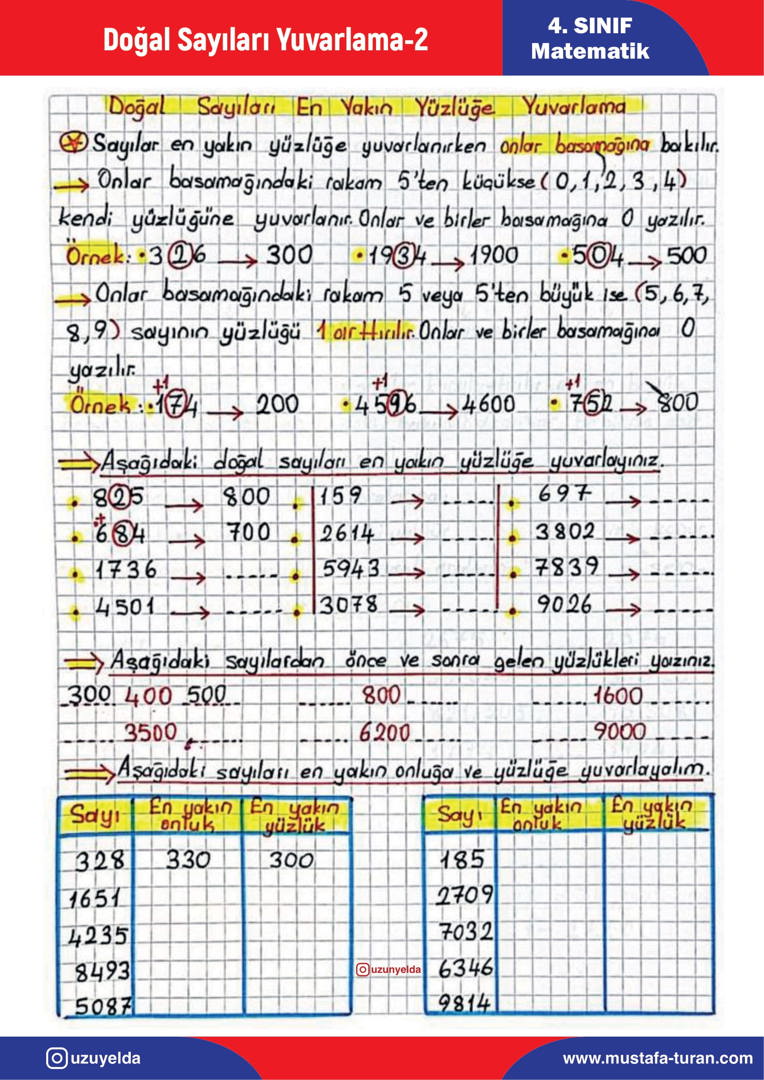 Doğal Sayıları Yuvarlama-2
4. SINIF
Matematik
Doğal Sayıları En Yakın Yüzlüğe Yuvarlama
Sayılar en yakın yüzlüğe yuvarlanırken onlar basamağına bakılır.
→ Onlar basamağındaki rakam 5'ten küçükse (0,1,2,3,4)
kendi yüzlüğüne yuvarlanır. Onlar ve birler basamağına 0 yazılır.
Örnek: • 326 → 300 • 1934 → 1900 • 504 → 500
→ Onlar basamağındaki rakam 5 veya 5'ten büyük ise (5,6,7,
8,9) sayının yüzlüğü 1 arttırılır. Onlar ve birler basamağına 0
yazılır.
+1 +1 +1
Örnek: • 174 → 200 • 4596 → 4600 • 752 → 800
⇒ Aşağıdaki doğal sayıları en yakın yüzlüğe yuvarlayınız.
• 825 → 800 • 159 → ----- • 697 → -----
+
• 684 → 700 • 2614 → ----- • 3802 → -----
• 1736 → ----- • 5943 → ----- • 7839 → -----
• 4501 → ----- • 3078 → ----- • 9026 → -----
⇒ Aşağıdaki sayılardan önce ve sonra gelen yüzlükleri yazınız.
300 400 500 ----- 800 ----- ----- 1600 -----
----- 3500 ----- ----- 6200 ----- ----- 9000 -----
⇒ Aşağıdaki sayıları en yakın onluğa ve yüzlüğe yuvarlayalım.
Sayı En yakın onluk En yakın yüzlük Sayı En yakın onluk En yakın yüzlük
328 330 300 185
1651 2709
4235 7032
8493 uzunyelda 6346
5087 9814
uzuyelda
www.mustafa-turan.com